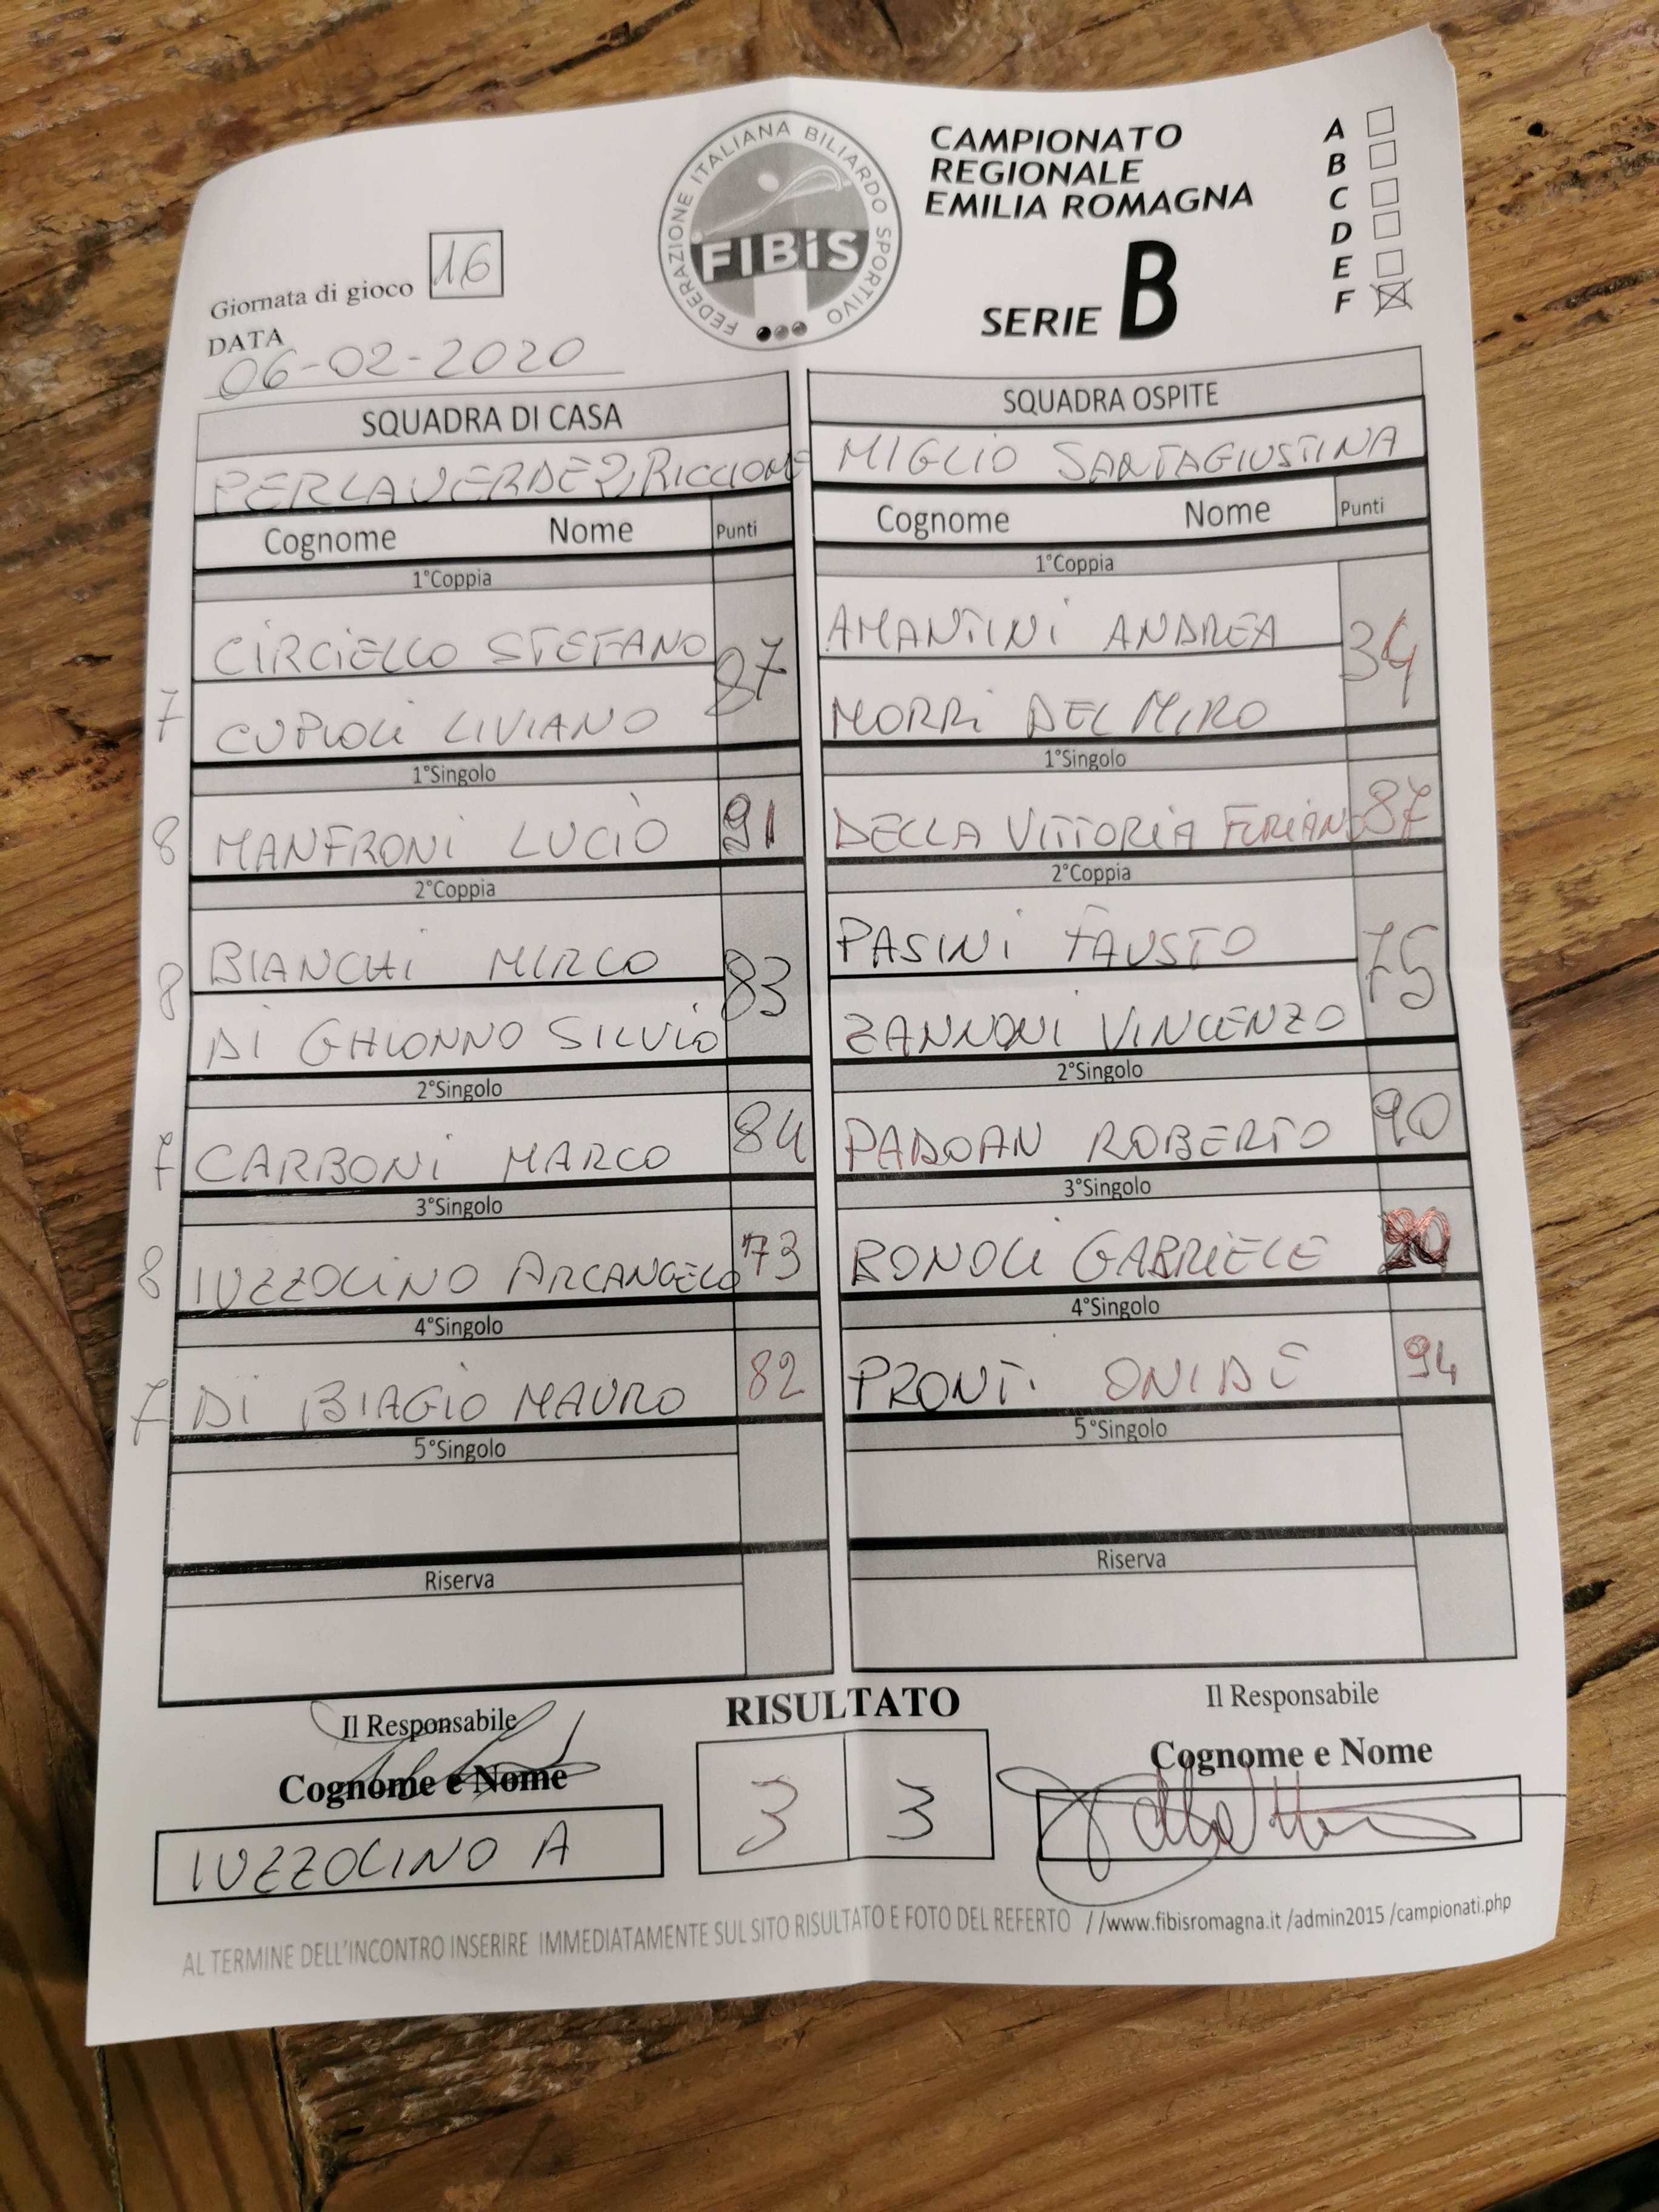 FEDERAZIONE ITALIANA BILIARDO SPORTIVO
FIBiS
CAMPIONATO
REGIONALE
EMILIA ROMAGNA
SERIE B
A
B
C
D
E
F
Giornata di gioco 16
DATA
06-02-2020
SQUADRA DI CASA
PERLAVERDE2 RICCIONE
Cognome Nome Punti
1°Coppia
CIRCIELLO STEFANO
87
7 CUPIOLI LIVIANO
1°Singolo
8 MANFRONI LUCIO 91
2°Coppia
BIANCHI MIRCO
8 83
DI GHIONNO SILVIO
2°Singolo
7 CARBONI MARCO 84
3°Singolo
8 IUZZOLINO ARCANGELO 73
4°Singolo
7 DI BIAGIO MAURO 82
5°Singolo
Riserva
SQUADRA OSPITE
MIGLIO SANTAGIUSTINA
Cognome Nome Punti
1°Coppia
AMANTINI ANDREA
34
MORRI DELMIRO
1°Singolo
DELLA VITTORIA 87
2°Coppia
PASINI FAUSTO
75
ZANNONI VINCENZO
2°Singolo
PADOAN ROBERTO 90
3°Singolo
BONOLI GABRIELE
4°Singolo
PRONTI ONIDE 94
5°Singolo
Riserva
Il Responsabile
Cognome e Nome
IUZZOLINO A
RISULTATO
3 3
Il Responsabile
Cognome e Nome
AL TERMINE DELL'INCONTRO INSERIRE IMMEDIATAMENTE SUL SITO RISULTATO E FOTO DEL REFERTO //www.fibisromagna.it /admin2015 /campionati.php